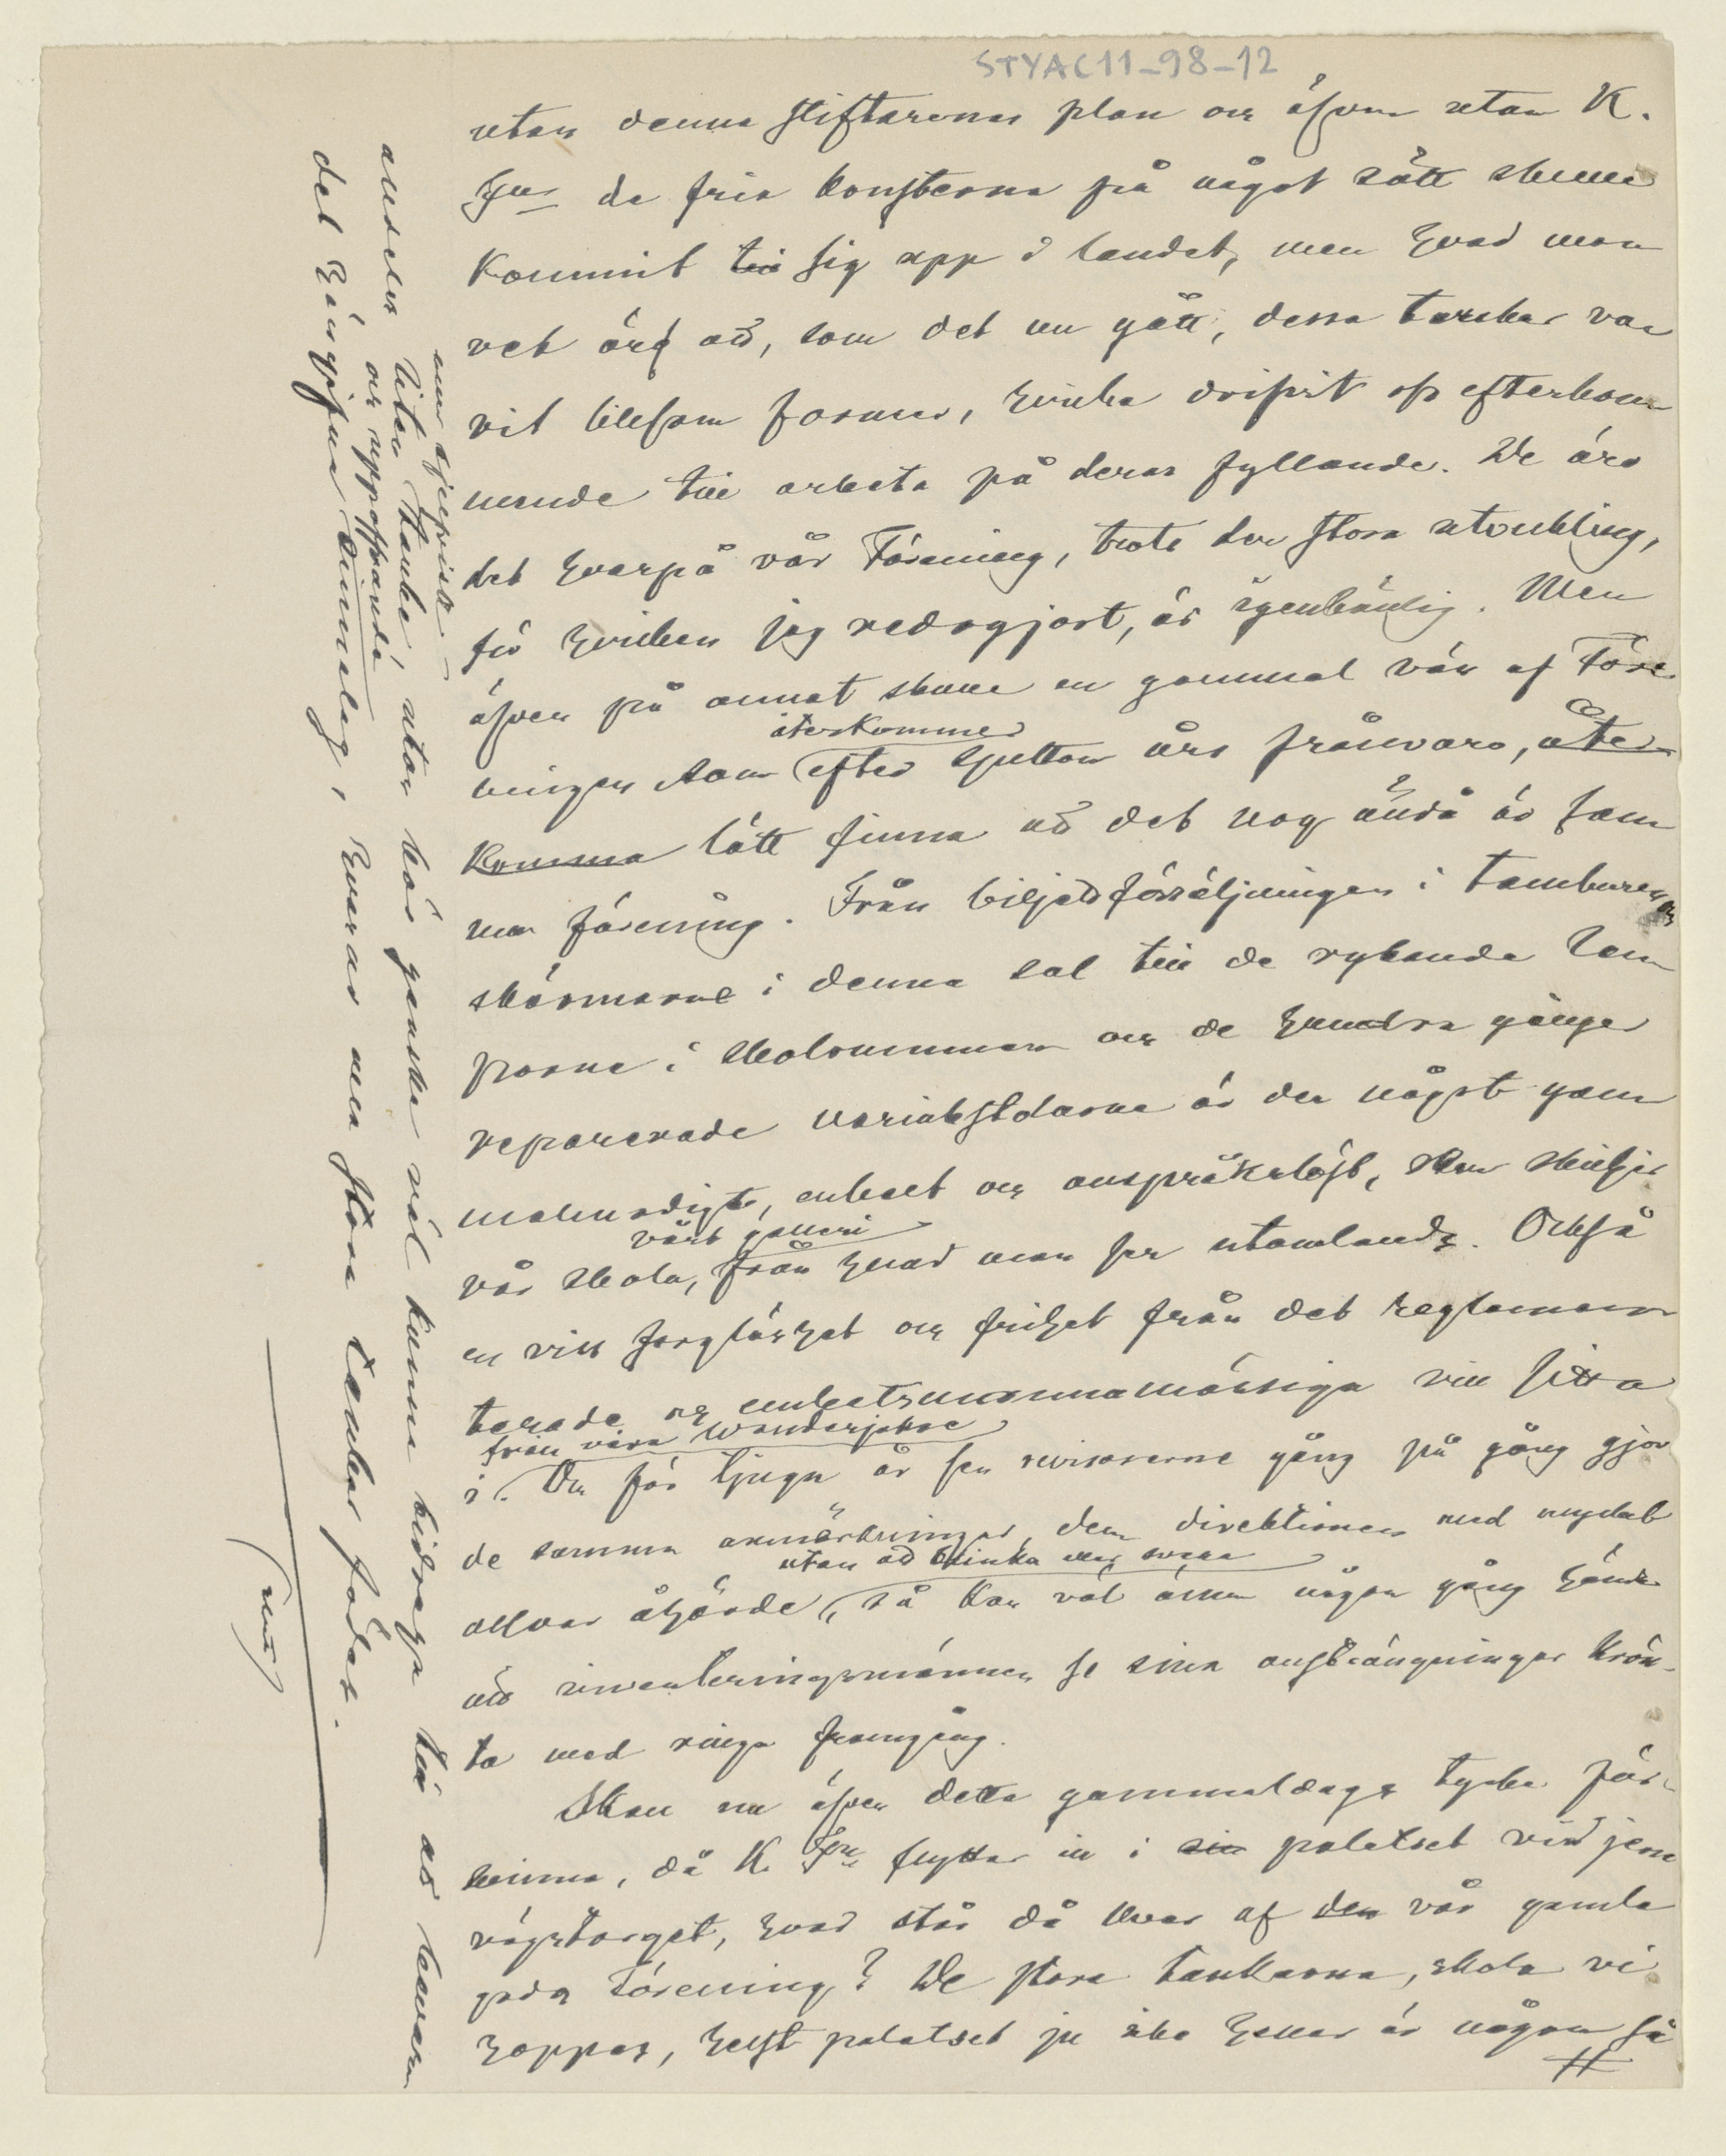 STYAC11-98-12
utan denna stiftarenas plan och äfven utan K.
Fns de fria konsterna på något sätt skulle
kommit till sig upp i landet, men hvad man
vet är att, som det nu gått, dessa tankar va
rit liksom former, hvilka drifvit oss efterkom
mande till arbeta på deras fyllande. De äro
det hvarpå vår Förening, trots den stora utveckling,
för hvilken jag redogjort, är igenkänlig. Men
äfven på annat skulle en gammal vän af Före
återkommer
ningen som efter sjutton års frånvaro, åter
komma lätt finna att det nog ändå är sam
ma förening. Från biljettförsäljningen i tamburen och
skärmarne i denna sal till de rykande lam
porna i skolrummen och de hundra gånger
reparerade stolarne är der något gam
malmodigt, enkelt och anspråkslöst, som skiljer
vårt galleri
vår skola, från hvad man ser utomlands. Också
en viss sorglöshet och frihet från det reglemen
terade och embetsmannamässiga vill sitta
från våra Wanderjahre
i. Om för tjugu år sen revisorerne gång på gång gjor
de samma anmärkningar, dem direktionen med mycket
utan att blinka eller svara
allvar åhörde, så kan väl ännu någon gång hända
att inventeringsmännen se sina ansträngningar krön-
ta med ringa framgång.
Skall nu äfven detta gammaldags tycke för-
svinna, då K. Fn flyttar in i sin palatset vid jern
vägstorget, hvad står då kvar af den vår gamla
goda Förening? De stora tankarna, skola vi
hoppas, helst palatset ju icke heller är någon så
#
om egoistisk
liten tanke, utan bör ganska väl kunna bidraga till att bevara
och uppoffrande
det hängifna sinnelag, hvarav de stora tankar födas.